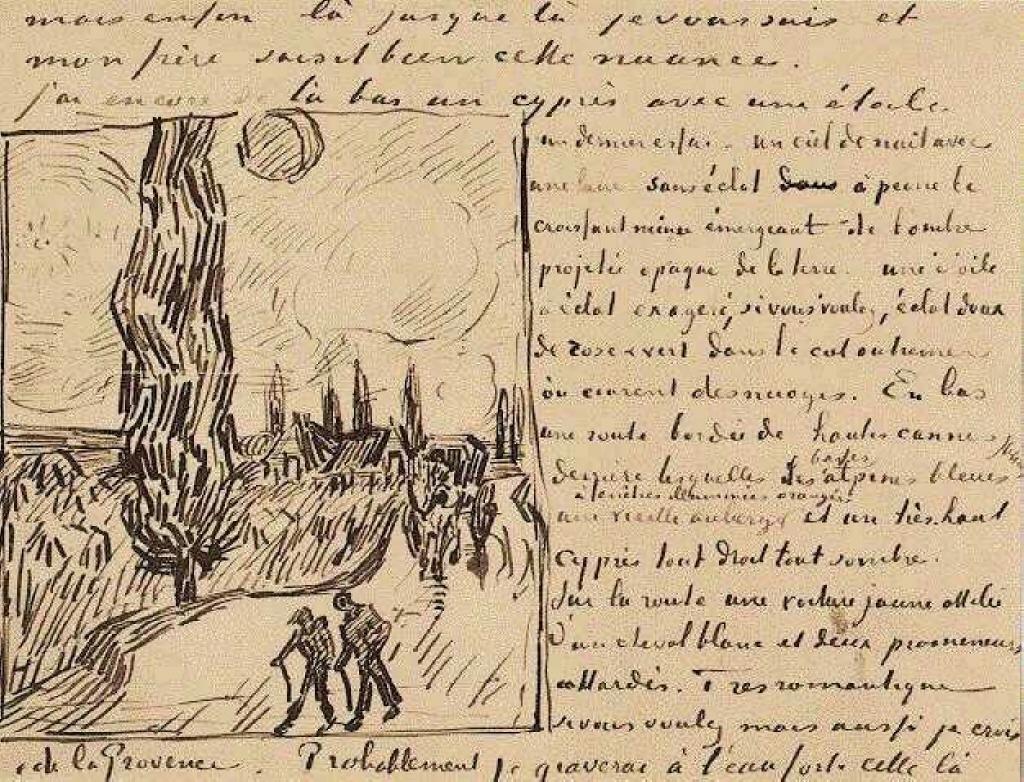 mais enfin là jusque là je vous suis et
mon frère saisit bien cette nuance.
j'ai encore de là bas un cyprès avec une étoile
un dernier essai - un ciel de nuit avec
une lune sans éclat dans à peine le
croissant mince émergeant de l'ombre
projetée opaque de la terre. une étoile
à éclat exagéré, si vous voulez, éclat doux
de rose & vert dans le ciel outremer
où courent des nuages. En bas
une route bordée de hautes cannes
derrière lesquelles les basses alpines bleues
une vieille auberge à fenêtres illuminées orangées et un très haut
cyprès tout droit tout sombre.
Sur la route une voiture jaune attelée
d'un cheval blanc et deux promeneurs
attardés. Très romantique
si vous voulez mais aussi je crois
de la Provence. Probablement je graverai à l'eau forte celle là